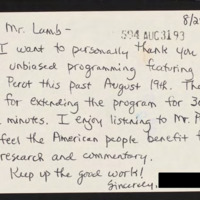 8/2
Mr. Lamb-
594 AUG 31 93
I want to personally thank you
unbiased programming featuring
Perot this past August 19th. Tha
for extending the program for 30
minutes. I enjoy listening to Mr. P
feel the American people benefit f
research and commentary.
Keep up the good work!
Sincerely,